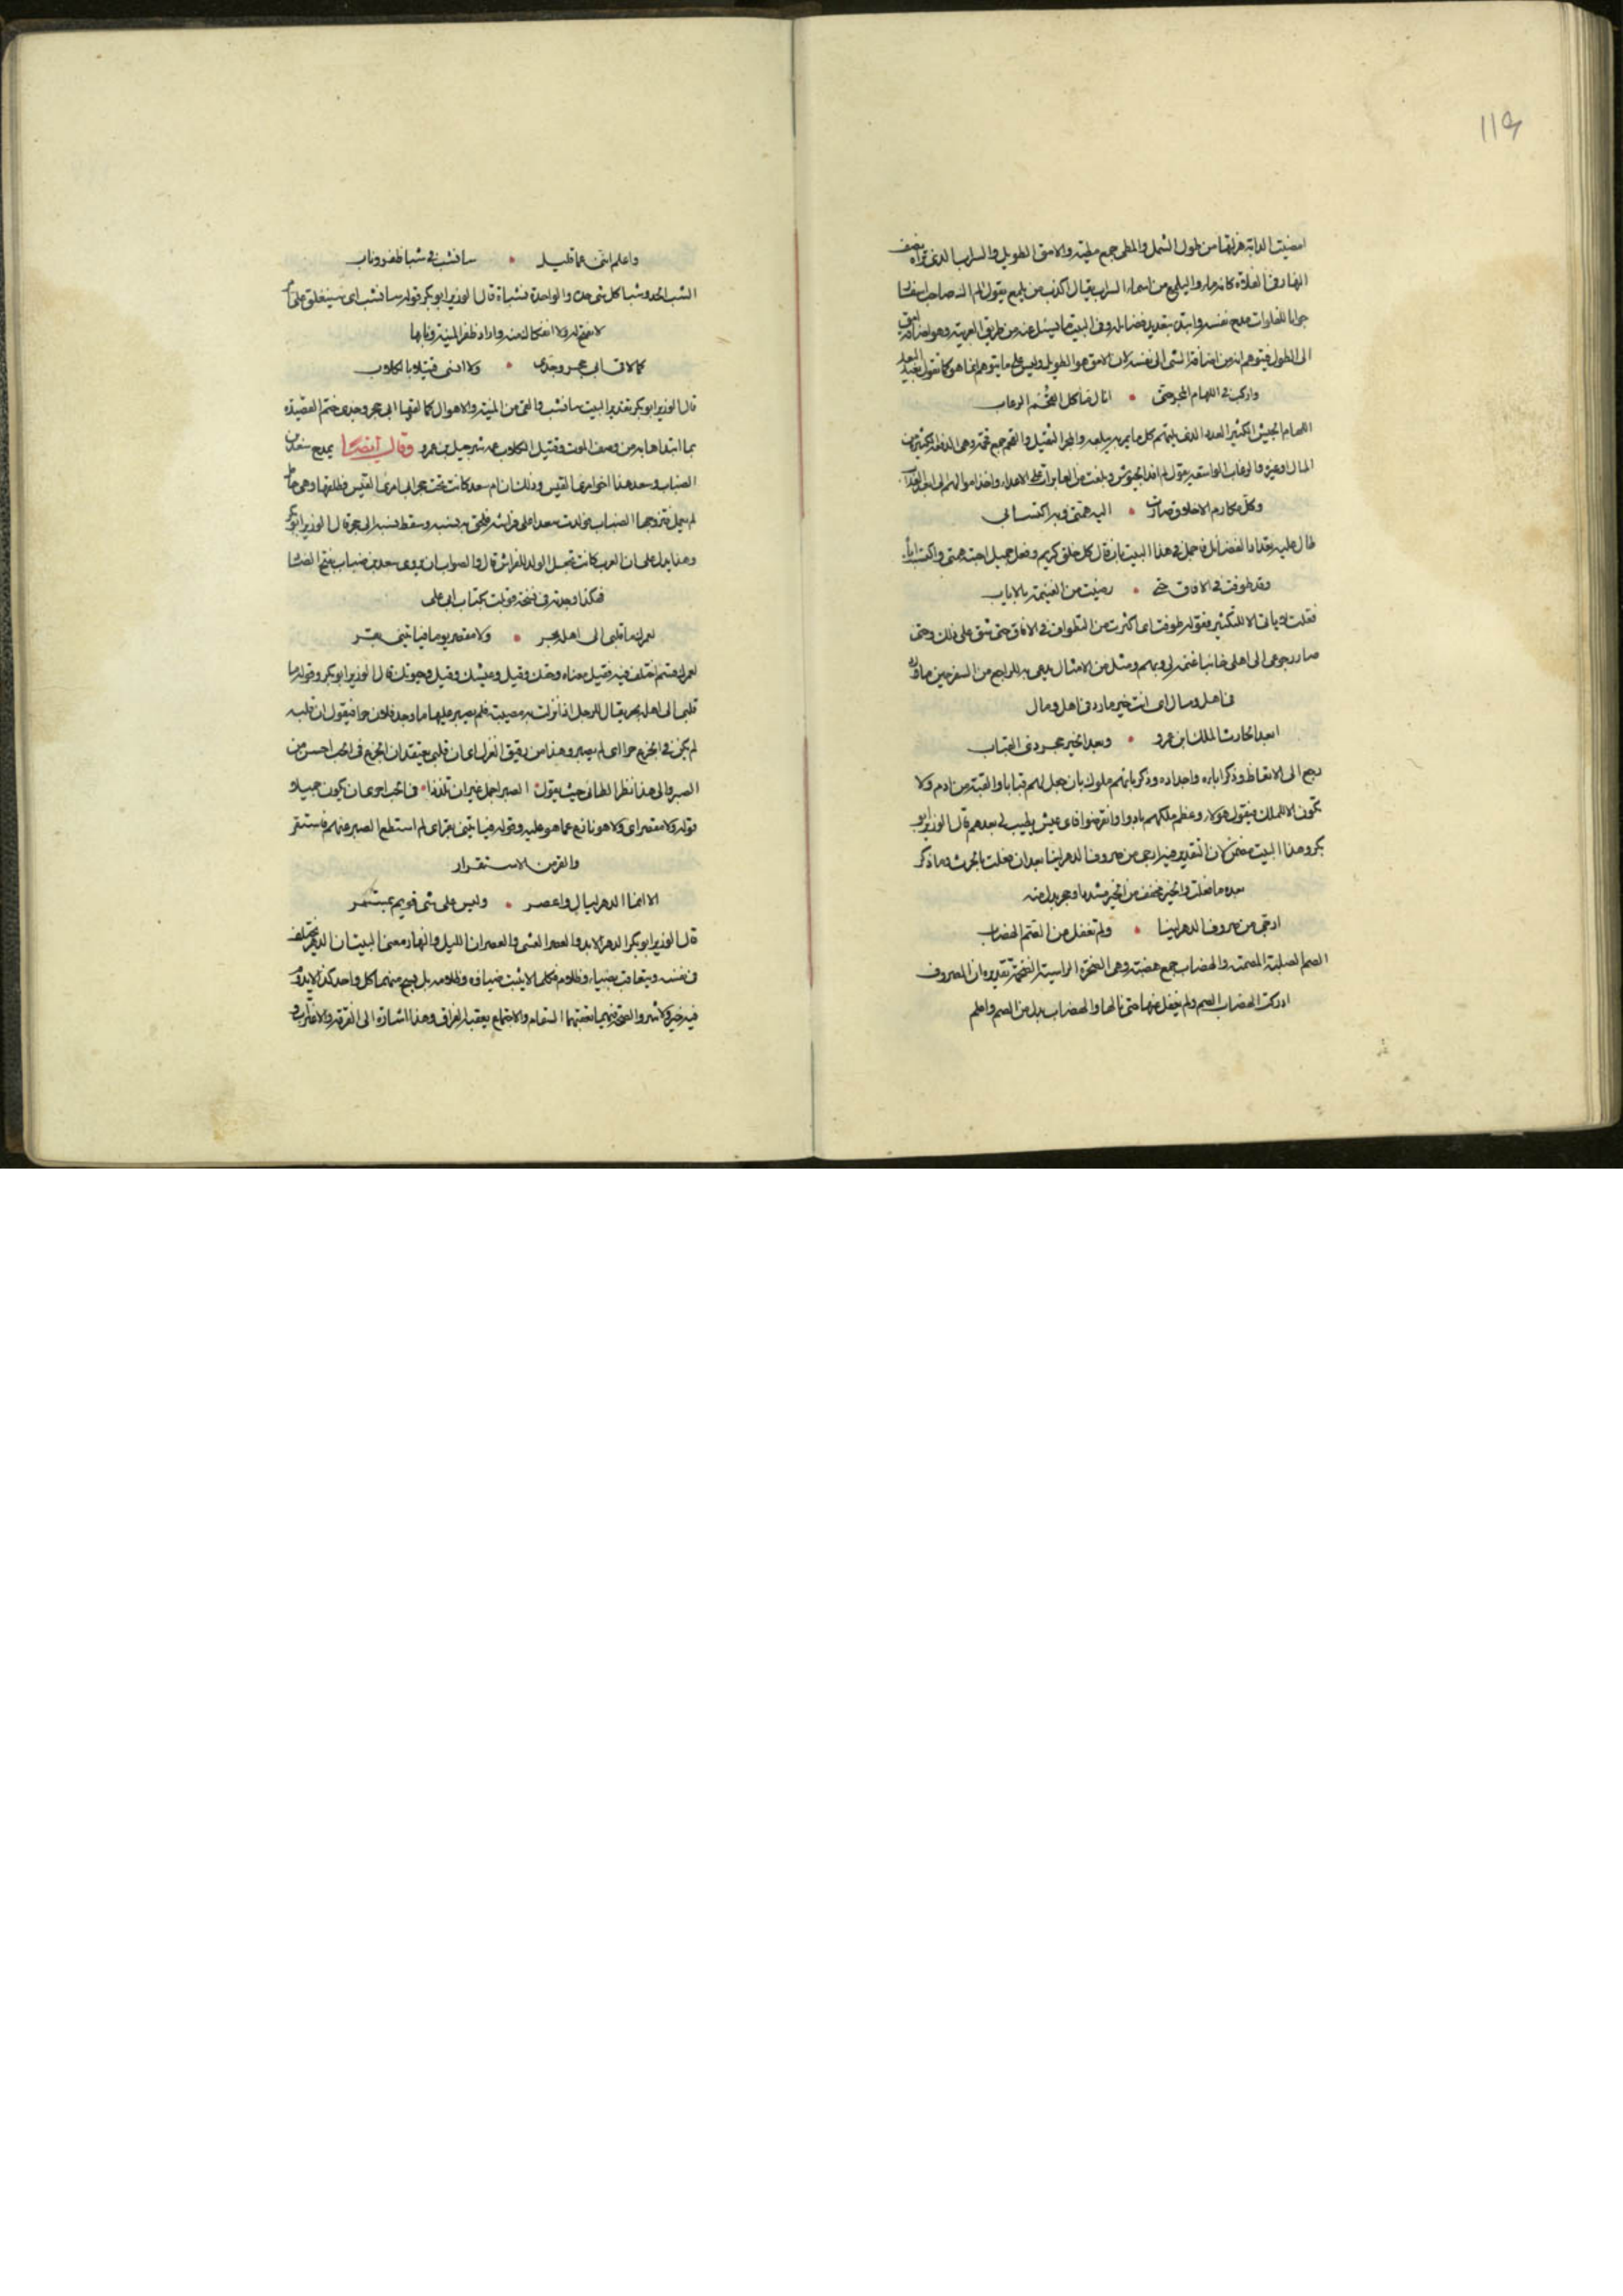 119
انضيت الدابة هزلتها من طول الشمل والمطي جمع مطية والامق الطويل والسراب الذي تراه نصف
النهار في الفلاة كانه ماء واليلمع من اسماء السراب يقال اكذب من يلمع يقول الم اك صاحب اسفار
جوابا للفلوات مدح نفسه وابتدا بتعديد فضايله وفي البيت ما يسئل عنه من طريق العربية وهو اضافة امق
الى الطول فيتوهم انه من اضافة الشي الى نفسه لان الامق هو الطويل وليس على ما يتوهم انما هو كما تقول بعيد البعد
واركب في اللهام المجر حتى • انال ماكل القحم الرغاب
اللهام الجيش الكثير العدد الذي يلتهم كل ما يمر به يبلعه والمجر الثقيل والقحم جمع قحمة وهي الدفعة الكثيرة من
المال وغيره والرغاب الواسعة يقول الم اقد الجيوش وبلغت من العابرات على الاعداء واخذ اموالهم الى ابعد الغايات
وكل مكارم الاخلاق صارت • اليه همتي وبه اكتسابي
طال عليه تعداد الفضائل فاجمل في هذا البيت بان قال كل خلق كريم وفعل جميل احبته همتي واكتسابي
وقد طوفت في الافاق حتى • رضيت من الغنيمة بالاياب
فعلت لا ياتي الا للتكثير فقوله طوفت اي اكثرت من التطواف في الافاق حتى شق على ذلك وحتى
صار رجوعي الى اهلي خائبا غنيمة لي ومثل من الامثال يدعى به للراجع من السفر خير ما رد
في اهل ومال اي انت خير ما رد في اهل ومال
ابعد الحارث الملك ابن عمرو • وبعد الخير حجر ذي القباب
رجع الى الاتعاظ وذكر اباءه واجداده وذكر بانهم ملوك بان جعل لهم قبابا والقبة من ادم ولا
تكون الا للملك فيقول هؤلاء وعظم ملكهم بادوا وانقرضوا فاي عيش يطيب لي بعدهم قال الوزير ابو
بكر وهذا البيت مضمن كان التقدير فيه ارجى من صروف الدهر لينا بعد ان فعلت بالحرث وما ذكر
بعده ما فعلت والخير مخفف من الخير مشددا وحجر بدل منه
ارجي من صروف الدهر لينا • ولم تغفل من الصم الهضاب
الصم الصلبة المصمتة والهضاب جمع هضبة وهي الصخرة الراسية الضخمة تقديره ان الصروف
ادركت الهضاب الصم ولم تغفل عنها حتى نالها والهضاب بدل من الصم واعلم
واعلم انني عما قليل • سانشب في شبا ظفر وناب
الشبا الحد وشبا كل شي حده والواحدة شباة قال الوزير ابو بكر قوله سانشب اي سينغلق على
لا فتح له ولا انفكاك منه واراد ظفر المنية ونابها
كما لاقى ابي حجر وجدي • ولا انسى قتيلا بالكلاب
قال الوزير ابو بكر تقدير البيت سانشب والقى من المنية والاهوال كما لقيها ابي حجر وجدي ختم القصيدة
بما ابتداها به من وصف الموت وقتيل الكلاب عمه شرحبيل بن عمرو وقال ايضا يمدح سعد بن
الضباب وسعد هذا اخو امرئ القيس وذلك ان ام سعد كانت تحت حجر ابي امرئ القيس فطلقها وهي حامل
لم يعلم فتزوجها الضباب فولدت سعدا على فراشه فلحق به نسبه وسقط نسبه الى حجر قال الوزير ابو بكر
وهذا يدل على ان العرب كانت تجعل الولد للفراش قال والصواب ان يروى سعد بن ضباب بفتح الضاد
فهكذا وجدته في نسخة قوبلت بكتاب ابي علي
لعمرك ما قلبي الى اهله بحر • ولا مقصر يوما فياتيني بقر
لعمرك قسم اختلف فيه فقيل معناه وحقك وقيل وعيشك وقيل وحيوتك قال الوزير ابو بكر وقوله ما
قلبي الى اهله بحر يقال للرجل اذا نزلت به مصيبة فلم يصبر عليها ما وجد فلان حرا فيقول ان قلبه
لم يكن في الجزع حرا اي لم يصبر وهذا من رقيق الغزل اي ان قلبي يعتقد ان الجزع في الحب احسن من
الصبر والى هذا نظر الطائي حيث يقول الصبر اجمل غير ان تلذذا • في الحب احرى ان يكون جميلا
قوله ولا مقصر اي ولا هو نازع عما هو عليه وقوله فياتيني بقر اي لم استطع الصبر عنهم فاستقر
والقر من الاستقرار
الا انما الدهر ليال واعصر • وليس على شي قويم بمستمر
قال الوزير ابو بكر الدهر الابد والعصر العشي والعصران الليل والنهار ومعنى البيت ان الدهر يختلف
في نفسه ويتعاقب بضياء وظلام فكما لا يثبت ضياؤه وظلامه بل يرجع منهما كل واحد كذا لا يدوم
فيه خير ولا شر والصحة فيهما تعقبها السقام والاجتماع يعقبه الفراق وهذا اشارة الى الفرقة والاغتراب